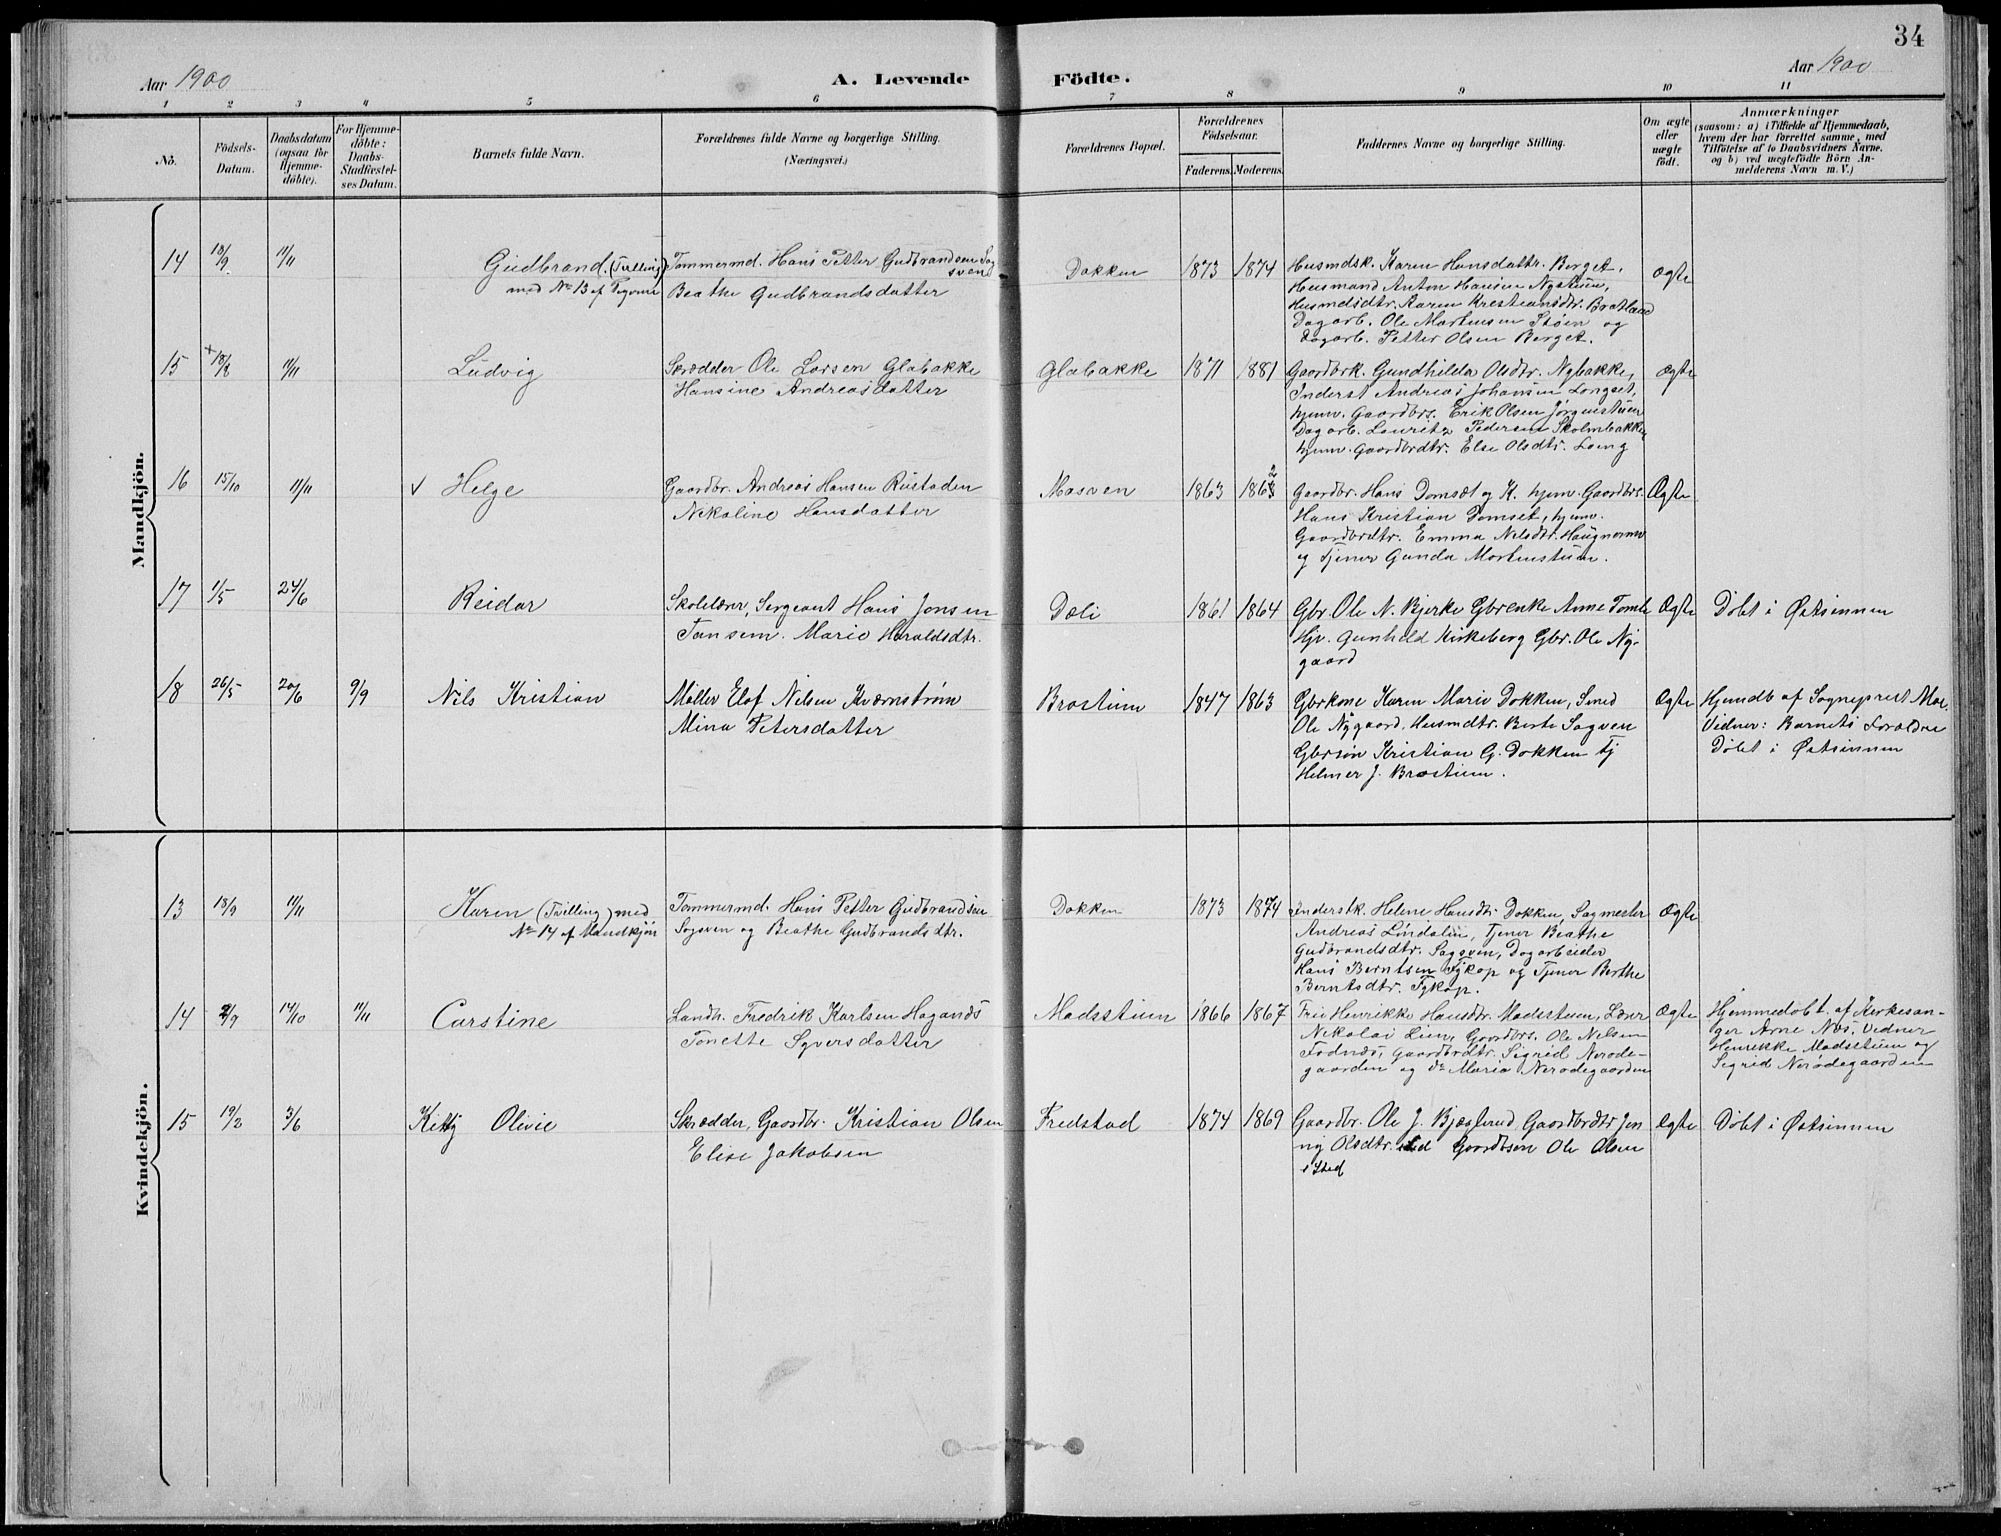 34
Aar 1900
A. Levende Födte.
Aar 1900
1 2 3 4 5 6 7 8 9 10 11
No.
Födsels-
Datum.
Daabsdatum
(ogsaa for
Hjemme-
döbte).
For Hjemme-
döbte:
Daabs-
Stadfæstel-
ses Datum.
Barnets fulde Navn.
Forældrenes fulde Navne og borgerlige Stilling.
(Næringsvei.)
Forældrenes Bopæl.
Forældrenes
Födselsaar.
Faderens. Moderens.
Faddernes Navne og borgerlige Stilling.
Om ægte
eller
uægte
født.
Anmærkninger
(saasom: a) i Tilfælde af Hjemmedaab,
hvem der har forrettet samme, med
Tilföielse af to Daabsvidners Navne.
og b) ved uægtefödte Börn An-
melderens Navn m. V.)
Mandkjön.
14 18/9 11/11
Gudbrand. (Tvilling)
med No 13 af
Tømmermd. Hans Petter Gudbrandsen Sag
sven
Beathe Gudbrandsdatter
Dokken 1873 1874
Husmdsk. Karen Hansdattr. Berget,
Husmand Anton Hansen Nystuen,
Husmdsdtr. Karen Kristiansdtr. Bratland
Dagarb. Ole Martinsen Støen og
Dagarb. Petter Olsen Berget.
Ægte
15 18/8 11/11
Ludvig
Skrædder Ole Larsen Glabakke
Hansine Andreasdatter
Glabakke 1871 1881
Gaardbrk. Gundhilda Olsdtr. Nybakke,
Inderst Andreas Johansen Longset,
hjmv. Gaardbrs. Erik Olsen Jørgenstuen
Dagarb. Lauritz Pedersen Skolmbakken
hjmv. Gaardbrdtr. Else Olsdtr. Loeng
Ægte
16 15/10 11/11
√ Helge
Gaardbr. Andreas Hansen Rustaden
Nekoline Hansdatter
Mosven 1863 1862
Gaardbr. Hans Domsæt og K. hjmv. Gaardbrs.
Hans Kristian Domset, hjmv.
Gaardbrdtr. Emma Nilsdtr. Haugnerne
og Tjener Gunda Mortenstuen.
Ægte
17 1/5 24/6
Reidar
Skolelærer, Sergeant Hans Jonsen
Tansem. Marie Haraldsdtr.
Dæli 1861 1864
Gbr. Ole N. Bjerke Gbrenke Anne Tomle
Hjv. Gunhild Kirkeberg Gbr. Ole Ny-
gaard
Ægte
Døbt i Østsinnen
18 26/5 20/6 9/9
Nils Kristian
Møller Elof Nilsen Kværnstrøm
Mina Petersdatter
Brostuen 1847 1863
Gbrkone Karen Marie Dokken, Smed
Ole Nygaard, Husmdtr. Berte Sagven
Gbrsøn Kristian G. Dokken tj
Helmer J. Brostuen.
Ægte
Hjemdb af Sogneprest Moe.
Vidner: Barnets Forældre
Døbt i Østsinnen
Kvindekjön.
13 18/9 11/11
Karen (Tvilling) med
No 14 af Mandkjøn
Tømmermd. Hans Petter Gudbrandsen
Sagsven og Beathe Gudbrandsdtr.
Dokken 1873 1874
Inderstk. Helene Hansdtr. Dokken, Sagmester
Andreas Lindalin, Tjener Beathe
Gudbrandsdtr. Sagsven, Dagarbeider
Hans Berntsen Fykop og Tjener Berthe
Berntsdtr. Fykop.
Ægte
14 2/9 14/10 11/11
Carstine
Landh. Fredrik Karlsen Hagands
Tonette Syversdatter
Madsstuen 1866 1867
Frue Henrikke Hansdtr. Madsstuen, Lærer
Nikolai Lien, Gaardbrs. Ole Nelsen
Fodnæs, Gaardbrdtr. Sigrid Nerøde-
gaarden og do Maria Nerødegaarden
Ægte
Hjemmedøbt af Kirkesan-
ger Arne Næs, Vidner
Henrikke Madsstuen og
Sigrid Nerødegaarden
15 19/2 3/6
Kitty Olivie
Skrædder, Gaardbr. Kristian Olsen
Elise Jakobsen
Fredstad 1874 1869
Gaardbr. Ole J. Bjæglerud Gaardbrdtr. Jen
ny Olsdtr. Gaardbsøn Ole Olsen
i Sted
Ægte
Døbt i Østsinnen